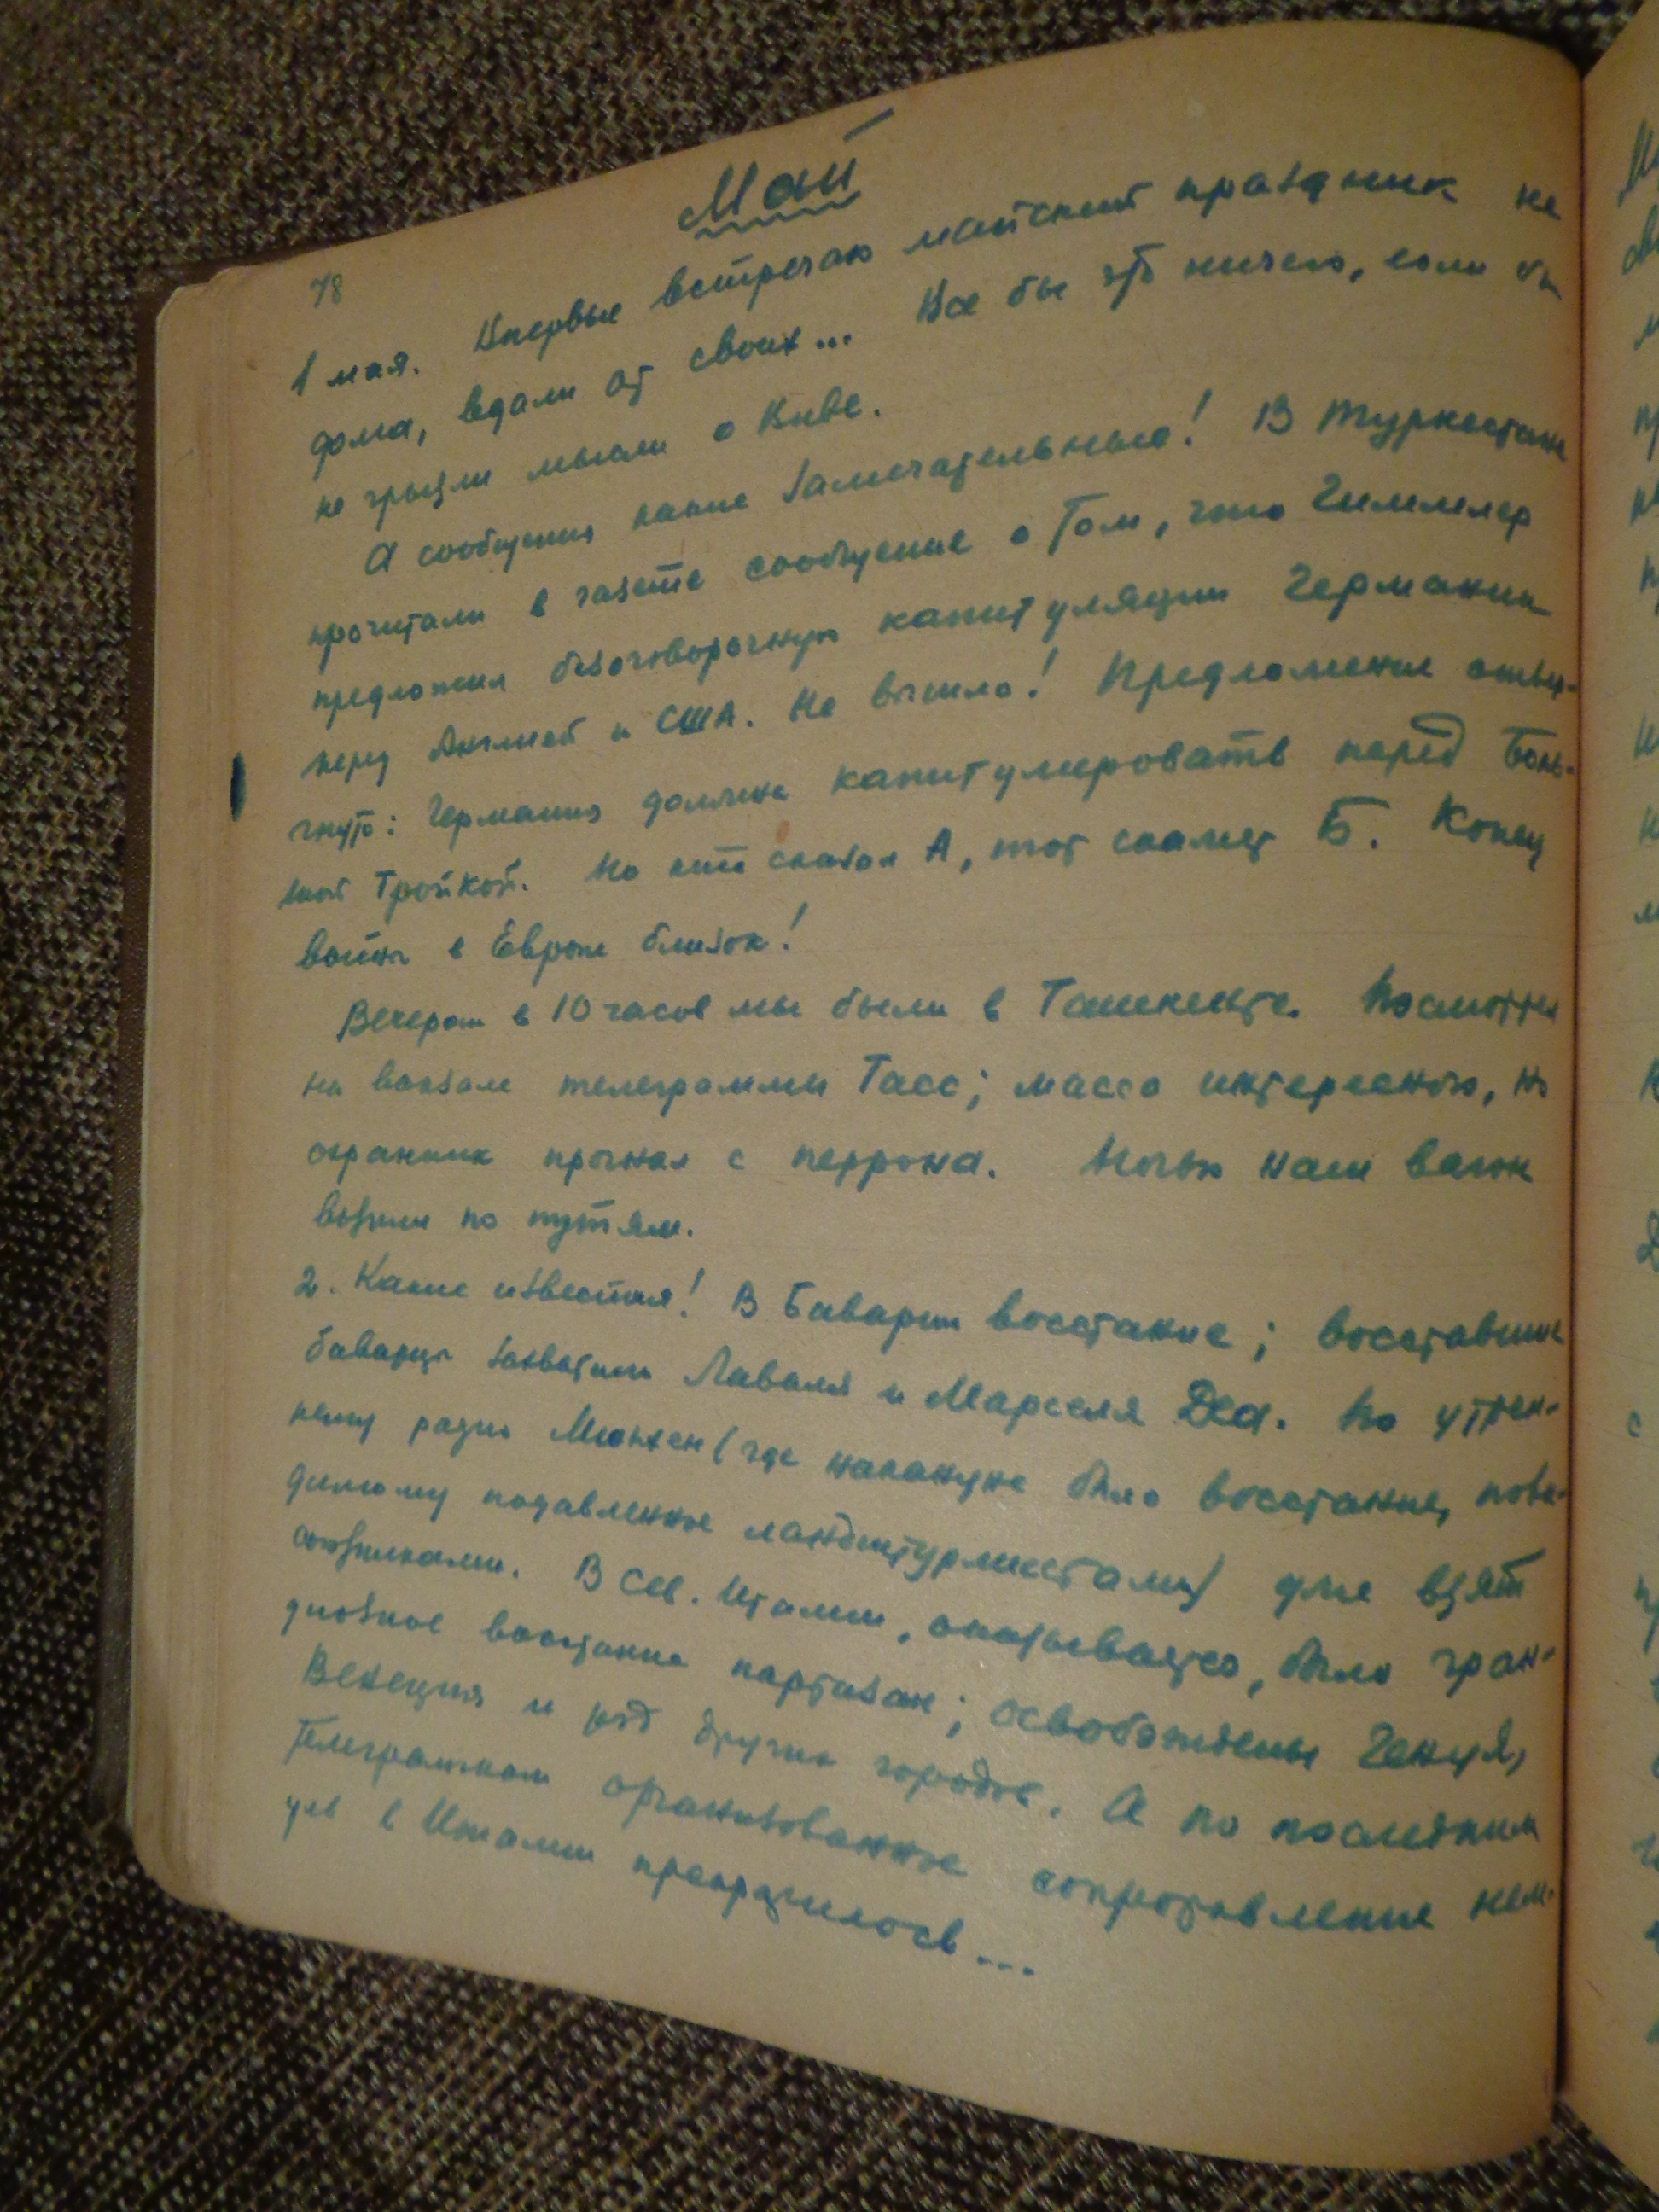 Май
78
1 мая. Впервые встречаю майский праздник не
дома, вдали от своих... Все бы это ничего, если бы
не грызли мысли о Киве.
А сообщения какие замечательные! В Туркестане
прочитали в газете сообщение о том, что Гиммлер
предложил безоговорочную капитуляцию Германии
перед Англией и США. Не вышло! Предложение отвер-
гнуто: Германия должна капитулировать перед Боль-
шой Тройкой. Но кто сказал А, тот скажет Б. Конец
войны в Европе близок!
Вечером в 10 часов мы были в Ташкенте. Посмотрел
на вокзале телеграммы Тасс; масса интересного, но
охранник прогнал с перрона. Ночью наш вагон
возили по путям.
2. Какие известия! В Баварии восстание; восставшие
баварцы захватили Лаваля и Марселя Деа. По утрен-
нему радио Мюнхен (где накануне было восстание, пови-
димому подавленное ландштурмистами) уже взят
союзниками. В Сев. Италии, оказывается, было гран-
диозное восстание партизан; освобождены Генуя,
Венеция и ряд других городов. А по последним
телеграммам организованное сопротивление нем-
цев в Италии прекратилось...